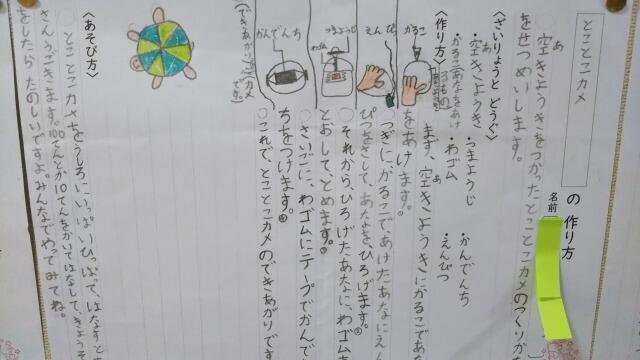 とことこカメ
の作り方
名前
空きようきをつかったとことこカメのつくりか
をせつめいします。
〈ざいりょうと どうぐ〉
・空きようき ・つまようじ ・かんでんち
・かるこ ・わゴム ・えんぴつ
〈作り方〉
まず、空きようきにかるこであ
をあけます。
つぎに、かるこであけたあなにえん
ぴつをさして、あなを、ひろげます。
それから、ひろげたあなに、わゴムを
とおして、とめます。
さいごに、わゴムにテープでかんで
ちをつけます。
これで、とことこカメのできあがりです
かるこ
えんぴ
つまようじ
わゴム
かんでんち
〈あそび方〉
とことこカメをうしろにいっぱいひっぱって、はなすとと
さんうごきます。100てんとか10てんをかいてはなして、きょうそ
をしたら たのしいですよ。みんなでやってみてね。